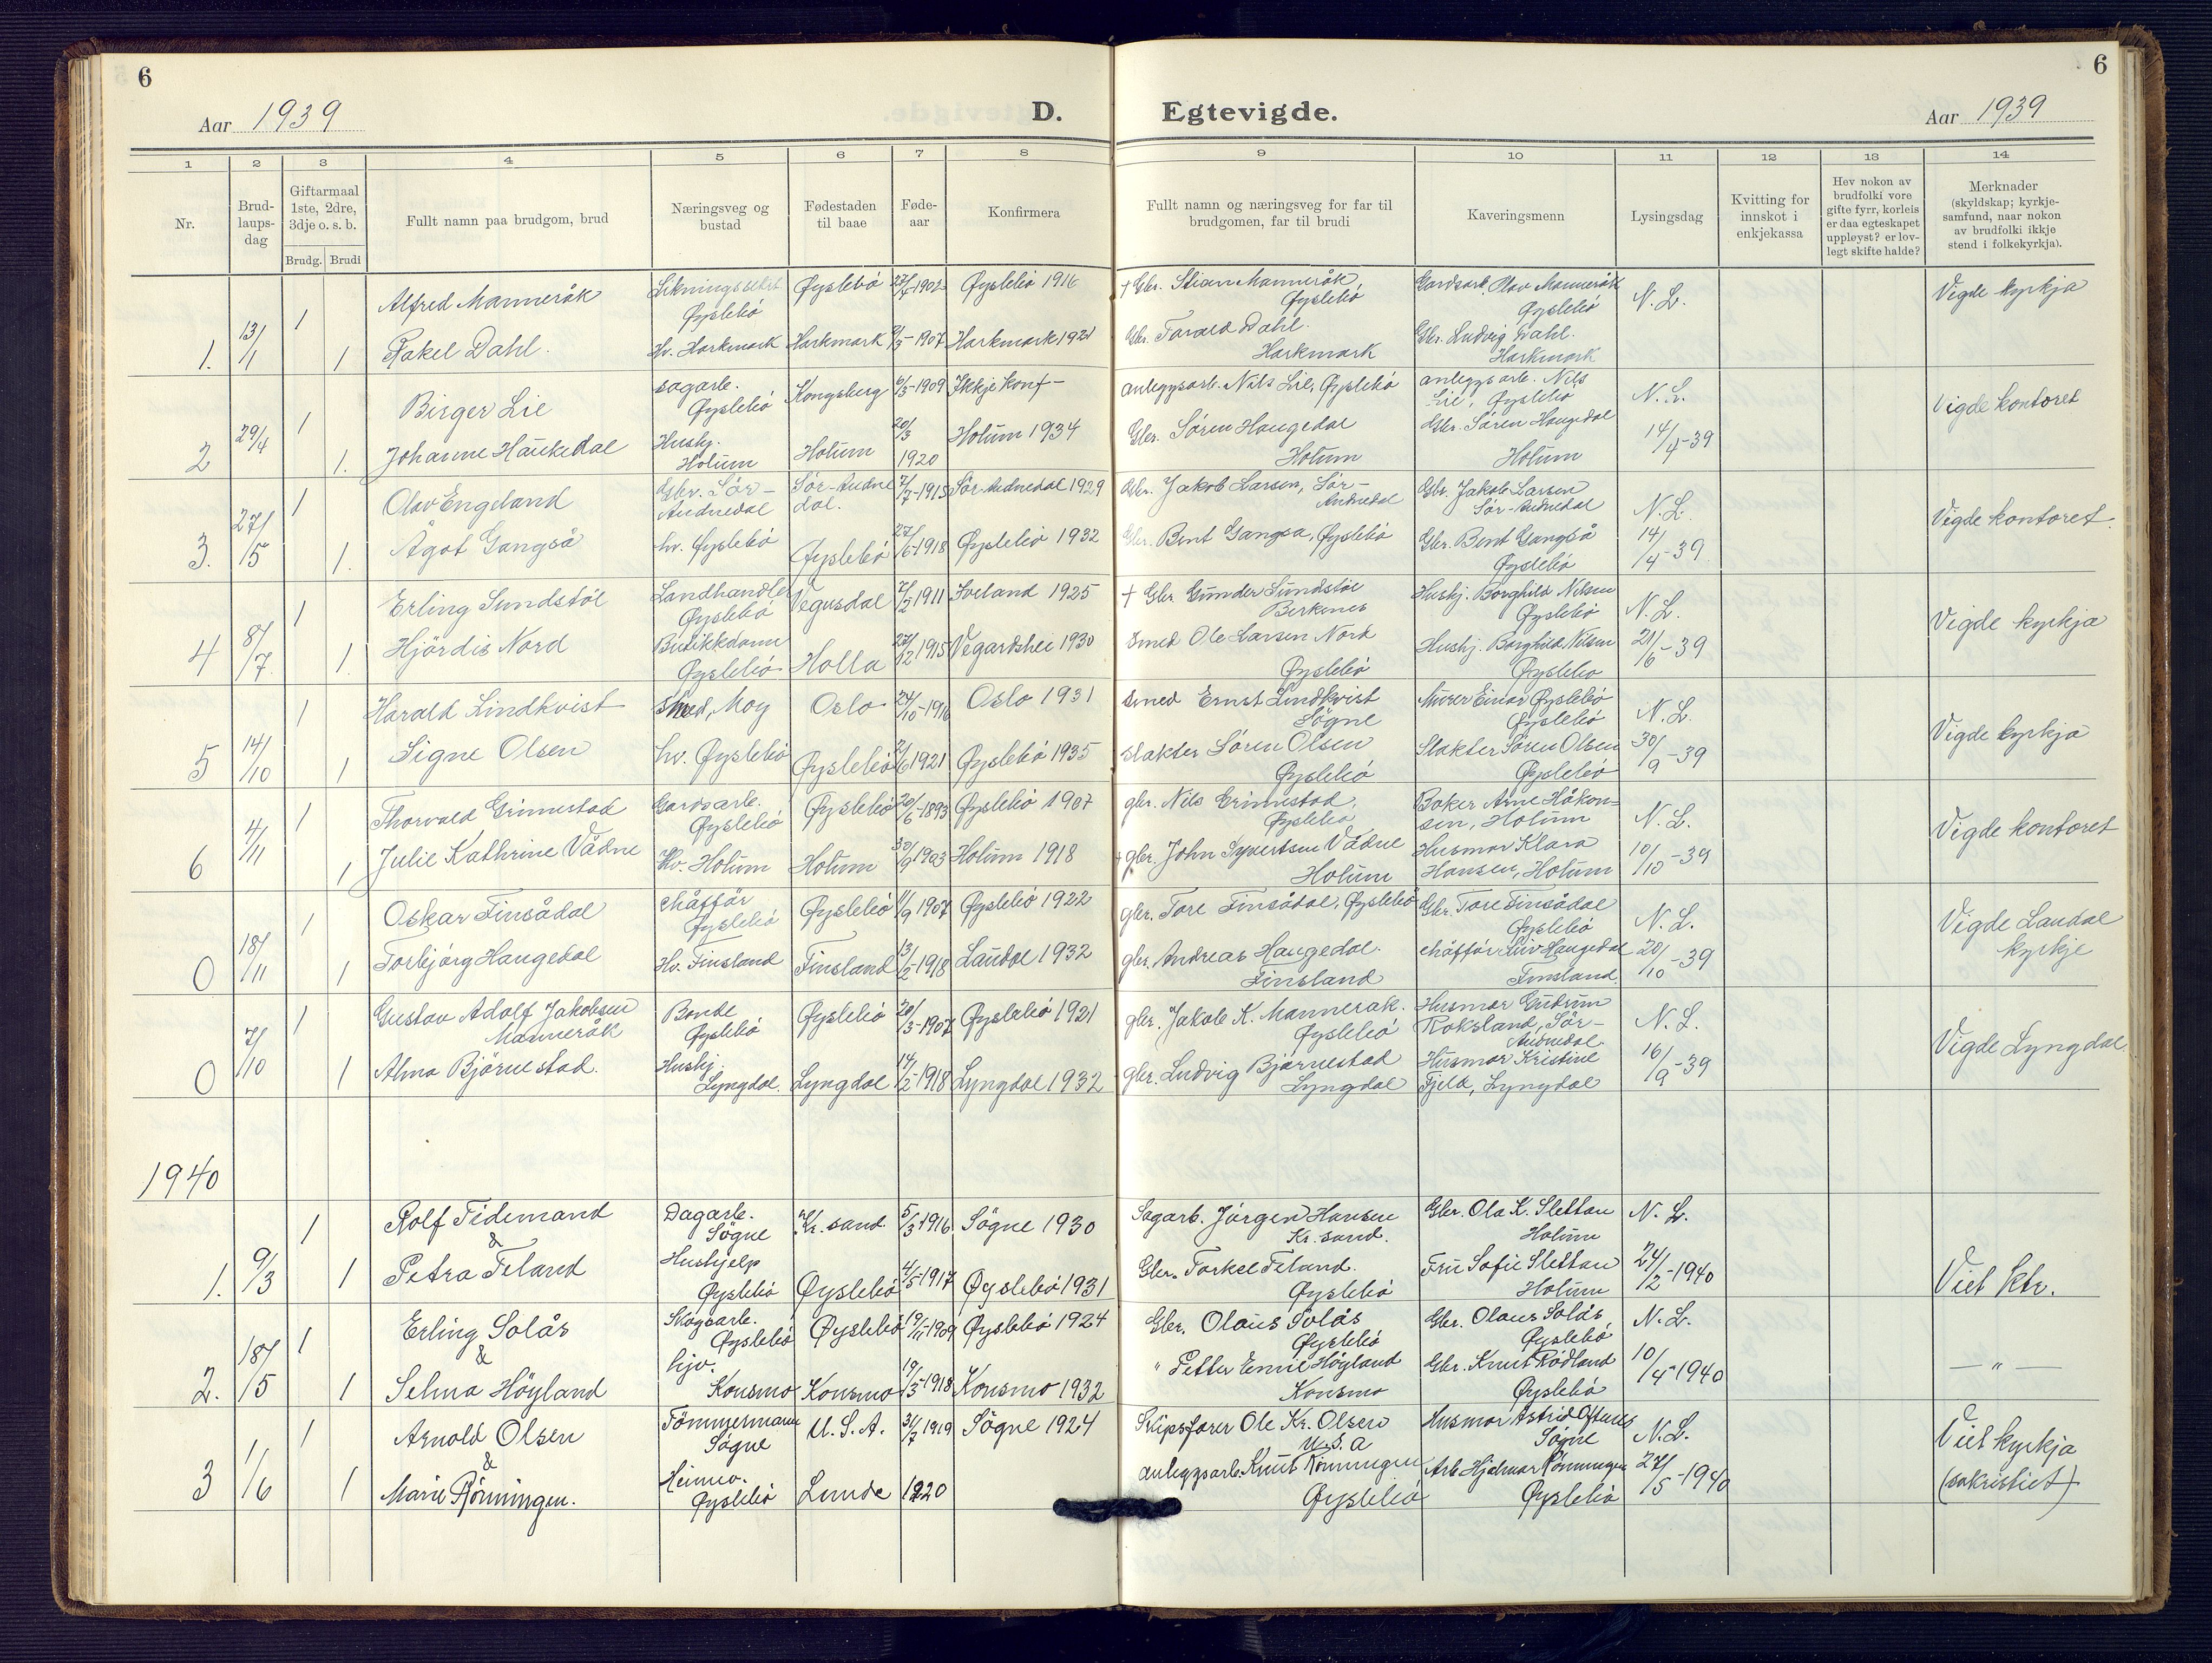 6
6
Aar 1939
D.
Egtevigde.
Aar 1939
1 2 3 4 5 6 7 8 9 10 11 12 13 14
Nr.
Brud-
laups-
dag
Giftarmaal
1ste, 2dre,
3dje o. s. b.
Brudg. Brudi
Fullt namn paa brudgom, brud
Næringsveg og
bustad
Fødestaden
til baae
Føde-
aar
Konfirmera
Fullt namn og næringsveg for far til
brudgomen, far til brudi
Kaveringsmenn
Lysingsdag
Kvitting for
innskot i
enkjekassa
Hev nokon av
brudfolki vore
gifte fyrr, korleis
er daa egteskapet
uppløyst? er lov-
legt skifte halde?
Merknader
(skyldskap; kyrkje-
samfund, naar nokon
av brudfolki ikkje
stend i folkekyrkja).
1. 13/1
1 Alfred Manneråk
Øyslebö
Øyslebö 27/4-1902 Øyslebö 1916
+ Gbr. Stian Manneråk
Øyslebö
Gardsarb. Olav Manneråk
Øyslebö
N. L.
Vigde kyrkja
1 Rakel Dahl.
Hv. Harkmark Harkmark 1907 Harkmark 1921
Gbr. Torald Dahl.
Harkmark
Gbr. Ludvig Dahl.
Harkmark
2 29/4
1 Birger Lie
sagarb.
Øyslebö
Kongsberg 6/3-1909 Ikkje konf-
anleggsarb. Nils Lie, Øyslebö
anleggsarb. Nils
Lie, Øyslebö
N. L.
Vigde kontoret
1. Johanne Haukedal
Hushj.
Holum
Holum 20/3
1920
Holum 1934
Gbr. Sören Haugedal
Holum
Gbr. Sören Haugedal
Holum
14/4-39
3. 27/5
1 Olav Engeland
Gbr. Sör-
Audnedal
Sör-Audne
dal.
7/7-1915 Sör-Audnedal 1929
Gbr. Jakob Larsen, Sör-
Audnedal
Gbr. Jakob Larsen
Sör-Audnedal
N. L.
Vigde kontoret.
1. Ågot Gangså
hv. Øyslebö
Øyslebö 27/6-1918 Øyslebö 1932
Gbr. Bent Gangsa, Øyslebö
Gbr. Bent Gangså
Øyslebö
14/4-39
4 8/7
1 Erling Sundstöl
Landhandler
Øyslebö
Vegusdal 7/2 1911 Iveland 1925
+ Gbr Gunder Sundstöl
Birkenes
Hushj. Borghild Nilsen
Øyslebö
N. L.
Vigde kyrkja
1 Hjördis Nord
Butikkdame
Øyslebö
Holla 27/12 1915 Vegardshei 1930
Smed Ole Larsen Nord
Øyslebö
Hushj. Borghild Nilsen
Øyslebö
21/6-39
5 14/10
1 Harald Lindkvist
Smed, Moy
Oslo 24/10-1916 Oslo 1931
smed Ernst Lindkvist
Sögne
Murer Einar Øyslebö
Øyslebö
N. L.
Vigde kyrkja
1 Signe Olsen
hv. Øyslebö
Øyslebö 2/6 1921 Øyslebö 1935
slakter Sören Olsen
Øyslebö
Slakter Sören Olsen
Øyslebö
30/9-39
6 4/11
1 Thorvald Grimestad
Gardsarb.
Øyslebö
Øyslebö 20/6-1893 Øyslebö 1907
gbr. Nils Grimestad,
Øyslebö
Baker Arne Håkon-
sen, Holum
N. L.
Vigde kontoret
1 Julie Kathrine Vådne
Hv. Holum Holum 30/9 1903 Holum 1918
+ gbr. John Syvertsen Vådne
Holum
Husmor Klara
Hansen, Holum
10/10-39
0 18/11
1 Oskar Finsådal
Øyslebö
Øyslebö 11/9 1907 Øyslebö 1922
gbr. Tore Finsådal, Øyslebö
Gbr. Tore Finsådal
Øyslebö
N. L.
Vigde Laudal
kyrkje
1 Torbjörg Haugedal
Hv. Finsland
Finsland 13/2-1918 Laudal 1932
gbr. Andreas Haugedal.
Finsland
Haugedal
Finsland
20/10-39
0 7/10
1 Gustav Adolf Jakobsen
Manneråk
Bonde
Øyslebö
Øyslebö 20/3-1907 Øyslebö 1921
gbr. Jakob K. Mannerak.
Øyslebö
Husmor Gudrun
Roksland, Sör-
Audnedal.
N. L.
Vigde Lyngdal
1 Alma Björnestad.
Hushj
Lyngdal.
Lyngdal 14/2-1918 Lyngdal 1932
gbr. Ludvig Björnestad
Lyngdal
Husmor Kristine
Fjeld, Lyngdal
16/9-39
1940
1. 9/3
1 Rolf Tidemand
&
Dagarb.
Sögne
Kr. sand 5/3 1916 Sögne 1930
Sagarb. Jörgen Hansen
Kr. sand.
Gbr. Ola K. Slettan
Holum
N. L.
1 Petra Feland
Hushjelp
Øyslebö
Øyslebö 4/5-1917 Øyslebö 1931
Gbr. Torkel Feland.
Øyslebö
Fru Sofie Slettan
Holum
24/2-1940
Viet ktr.
2. 18/5
1 Erling Solås
&
Skogsarb.
Øyslebö
Øyslebö 19/11-1909 Øyslebö 1924
Gbr. Olaus Solås
Øyslebö
Gbr. Olaus Solås,
Øyslebö
N. L.
1 Selma Höyland
hjv.
Konsmo
Konsmo 19/3-1918 Konsmo 1932
" Petter Emil Höyland
Konsmo
Gbr. Knut Rödland
Øyslebö
10/4-1940
— " —
3 1/6
1 Arnold Olsen
&
Tömmermann
Sögne
U. S. A. 31/7 1919 Sögne 1924
Skipsförer Ole Kr. Olsen
U. S. A
Husmor Astrid
Sögne
N. L.
Viet kyrkja
(sakristiet)
1 Marie Rönningen.
Heimev.
Øyslebö
Lunde 1920
anleggsarb. Knut Rönningen
Øyslebö
Arb. Hjalmar Rönningen
Øyslebö
27/5-1940